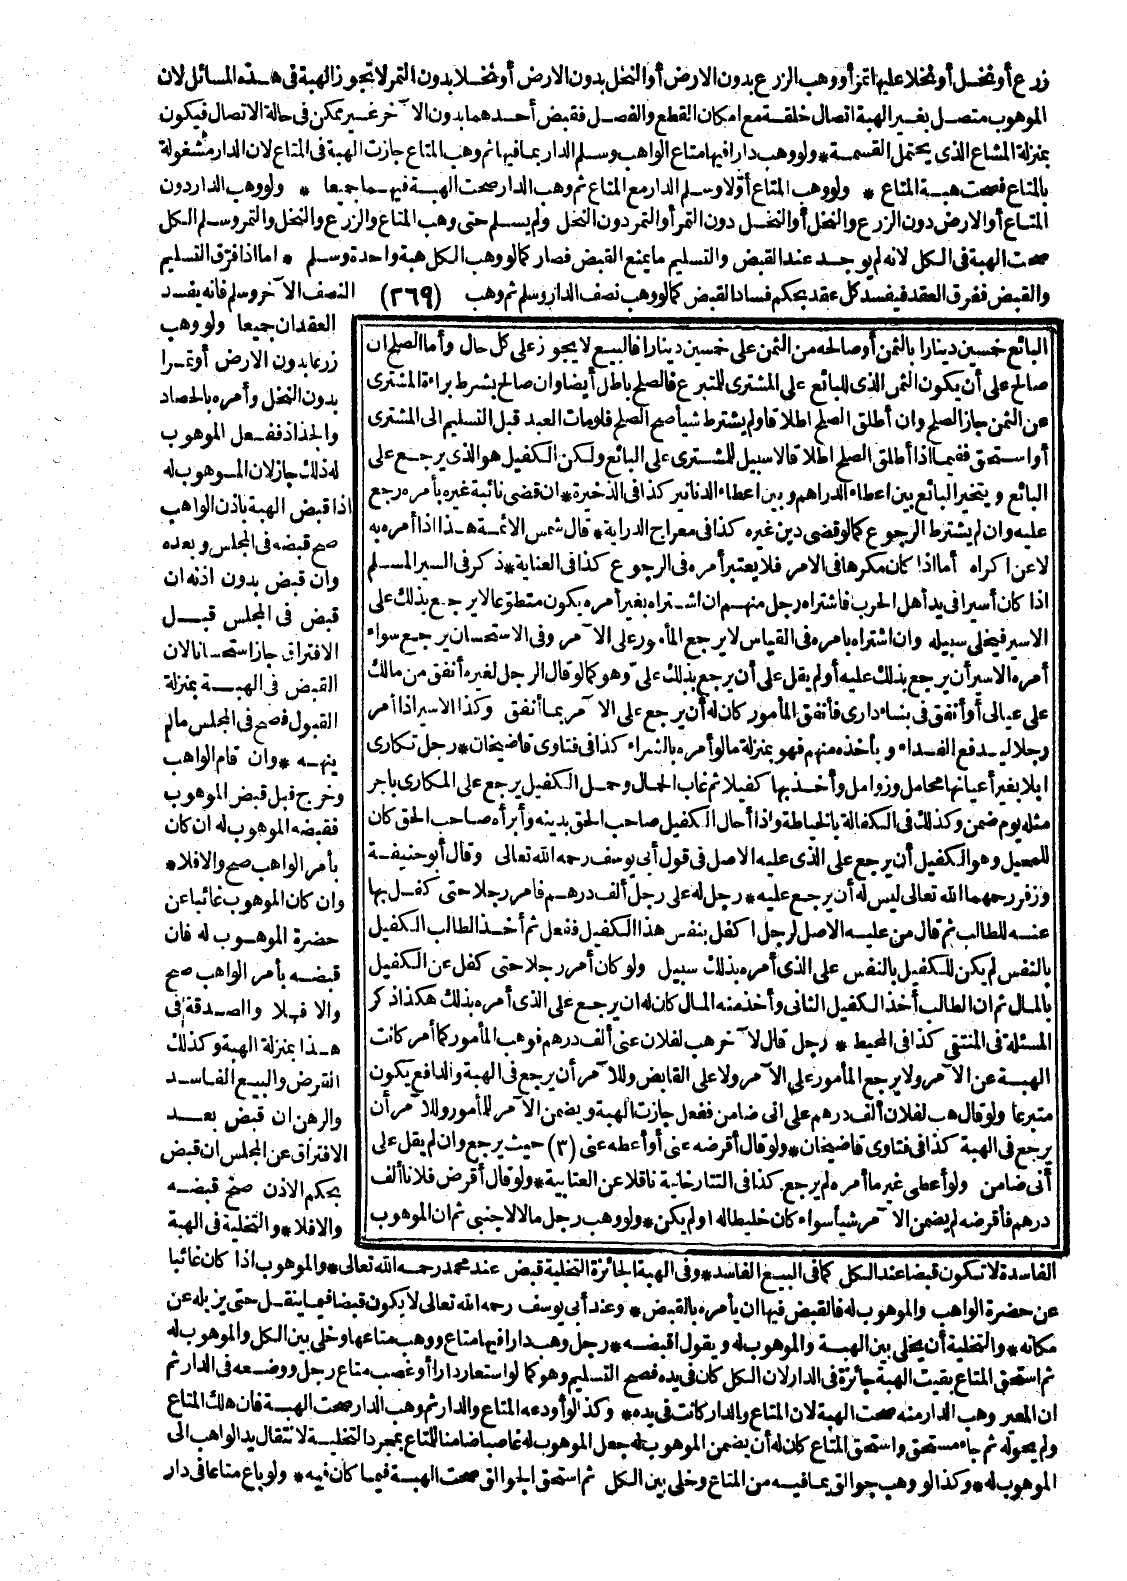 زرع أو نخل أو نخلا عليها تمر أو وهب الزرع بدون الارض أو النخل بدون الارض أو نخلا بدون التمر لا تجوز الهبة فى هذه المسائل لان
الموهوب متصل بغير الهبة اتصال خلقة مع امكان القطع والفصل فقبض أحدهما بدون الآخر غير ممكن فى حالة الاتصال فيكون
بمنزلة المشاع الذى يحتمل القسمة * ولو وهب دارا فيها متاع الواهب وسلم الدار بما فيها ثم وهب المتاع جازت الهبة فى المتاع لان الدار مشغولة
بالمتاع فصحت هبة المتاع * ولو وهب المتاع أوّلا وسلم الدار مع المتاع ثم وهب الدار صحت الهبة فيهما جميعا * ولو وهب الدار دون
المتاع أو الارض دون الزرع والنخل أو النخل دون التمر أو التمر دون النخل ولم يسلم حتى وهب المتاع والزرع والنخل والتمر وسلم الكل
صحت الهبة فى الكل لانه لم يوجد عند القبض والتسليم ما يمنع القبض فصار كما لو وهب الكل هبة واحدة وسلم * اما اذا فرّق التسليم
والقبض ففرق العقد فيفسد كل عقد بحكم فساد القبض كما لو وهب نصف الدار وسلم ثم وهب (٢٦٩) النصف الآخر وسلم فانه يفسد
العقدان جميعا ولو وهب
زرعا بدون الارض أو تمرا
بدون النخل وأمره بالحصاد
والجذاذ ففعل الموهوب
له ذلك جاز لان الموهوب له
اذا قبض الهبة باذن الواهب
صح قبضه فى المجلس وبعده
وان قبض بدون اذنه ان
قبض فى المجلس قبل
الافتراق جاز استحسانا لان
القبض فى الهبة بمنزلة
القبول فصح فى المجلس ما لم
ينهه * وان قام الواهب
وخرج قبل قبض الموهوب
فقبضه الموهوب له ان كان
بأمر الواهب صح والا فلا *
وان كان الموهوب غائبا عن
حضرة الموهوب له فان
قبضه بأمر الواهب صح
والا فلا والصدقة فى
هذا بمنزلة الهبة وكذلك
القرض والبيع الفاسد
والرهن ان قبض بعد
الافتراق عن المجلس ان قبض
بحكم الاذن صح قبضه
والا فلا * والتخلية فى الهبة
البائع خمسين دينارا بالثمن أو صالحه من الثمن على خمسين دينارا فالبيع لا يجوز على كل حال وأما الصلح ان
صالح على أن يكون الثمن الذى للبائع على المشترى للمتبرع فالصلح باطل أيضا وان صالح بشرط براءة المشترى
عن الثمن جاز الصلح وان أطلق الصلح اطلاقا ولم يشترط شيأ صح الصلح فلو مات العبد قبل التسليم الى المشترى
أو استحق ففيما اذا أطلق الصلح اطلاقا لا سبيل للمشترى على البائع ولكن الكفيل هو الذى يرجع على
البائع ويتخير البائع بين اعطاء الدراهم وبين اعطاء الدنانير كذا فى الذخيرة * ان قضى نائبة غيره بأمره رجع
عليه وان لم يشترط الرجوع كما لو قضى دين غيره كذا فى معراج الدراية * قال شمس الائمة هذا اذا أمره به
لا عن اكراه أما اذا كان مكرها فى الامر فلا يعتبر أمره فى الرجوع كذا فى العناية * ذكر فى السير المسلم
اذا كان أسيرا فى يد أهل الحرب فاشتراه رجل منهم ان اشتراه بغير أمره يكون متطوّعا لا يرجع بذلك على
الاسير فيخلى سبيله وان اشتراه بامره فى القياس لا يرجع المأمور على الآمر وفى الاستحسان يرجع سواء
أمره الاسير أن يرجع بذلك عليه أو لم يقل على أن يرجع بذلك علىّ وهو كما لو قال الرجل لغيره أنفق من مالك
على عيالى أو أنفق فى بناء دارى فأنفق المأمور كان له أن يرجع على الآمر بما أنفق وكذا الاسير اذا أمر
رجلا ليدفع الفداء ويأخذه منهم فهو بمنزلة ما لو أمره بالشراء كذا فى فتاوى قاضيخان * رجل تكارى
ابلا بغير أعيانها محامل وزوامل وأخذ بها كفيلا ثم غاب الجمال وحمل الكفيل يرجع على المكارى باجر
مثله يوم ضمن وكذلك فى الكفالة بالخياطة واذا أحال الكفيل صاحب الحق بدينه وأبرأه صاحب الحق كان
للمحيل وهو الكفيل أن يرجع على الذى عليه الاصل فى قول أبى يوسف رحمه الله تعالى وقال أبو حنيفة
وزفر رحمهما الله تعالى ليس له أن يرجع عليه * رجل له على رجل ألف درهم فامر رجلا حتى كفل بها
عنه للطالب ثم قال من عليه الاصل لرجل اكفل بنفس هذا الكفيل ففعل ثم أخذ الطالب الكفيل
بالنفس لم يكن للكفيل بالنفس على الذى أمره بذلك سبيل ولو كان أمر رجلا حتى كفل عن الكفيل
بالمال ثم ان الطالب أخذ الكفيل الثانى وأخذ منه المال كان له ان يرجع على الذى أمره بذلك هكذا ذكر
المسئلة فى المنتقى كذا فى المحيط * رجل قال لآخر هب لفلان عنى ألف درهم فوهب المأمور كما أمر كانت
الهبة عن الآمر ولا يرجع المأمور على الآمر ولا على القابض وللآمر أن يرجع فى الهبة والدافع يكون
متبرعا ولو قال هب لفلان ألف درهم على انى ضامن ففعل جازت الهبة ويضمن الآمر للمأمور وللآمر أن
يرجع فى الهبة كذا فى فتاوى قاضيخان * ولو قال أقرضه عنى أو أعطه عنى (٣) حيث يرجع وان لم يقل على
أنى ضامن ولو أعطى غير ما أمره لم يرجع كذا فى التتارخانية ناقلا عن العتابية * ولو قال أقرض فلانا ألف
درهم فأقرضه لم يضمن الآمر شيأ سواء كان خليطا له أو لم يكن * ولو وهب رجل مالا لاجنبى ثم ان الموهوب
الفاسدة لا تكون قبضا عند الكل كما فى البيع الفاسد * وفى الهبة الجائزة التخلية قبض عند محمد رحمه الله تعالى * والموهوب اذا كان غائبا
عن حضرة الواهب والموهوب له فالقبض فيها ان يأمره بالقبض * وعند أبى يوسف رحمه الله تعالى لا يكون قبضا فيما ينقل حتى يزيله عن
مكانه * والتخلية أن يخلى بين الهبة والموهوب له ويقول اقبضه * رجل وهب دارا فيها متاع ووهب متاعها وخلى بين الكل والموهوب له
ثم استحق المتاع بقيت الهبة جائزة فى الدار لان الكل كان فى يده فصح التسليم وهو كما لو استعار دارا أو غصب متاع رجل ووضعه فى الدار ثم
ان المعير وهب الدار منه صحت الهبة لان المتاع والدار كانت فى يده * وكذا لو أودعه المتاع والدار ثم وهب الدار صحت الهبة فان هلك المتاع
ولم يحوله ثم جاء مستحق واستحق المتاع كان له أن يضمن الموهوب له جعل الموهوب له غاصبا ضامنا للمتاع بمجرد التخلية لانتقال يد الواهب الى
الموهوب له * وكذا لو وهب جوالق بما فيه من المتاع وخلى بين الكل ثم استحق الجوالق صحت الهبة فيما كان فيه * ولو باع متاعا فى دار